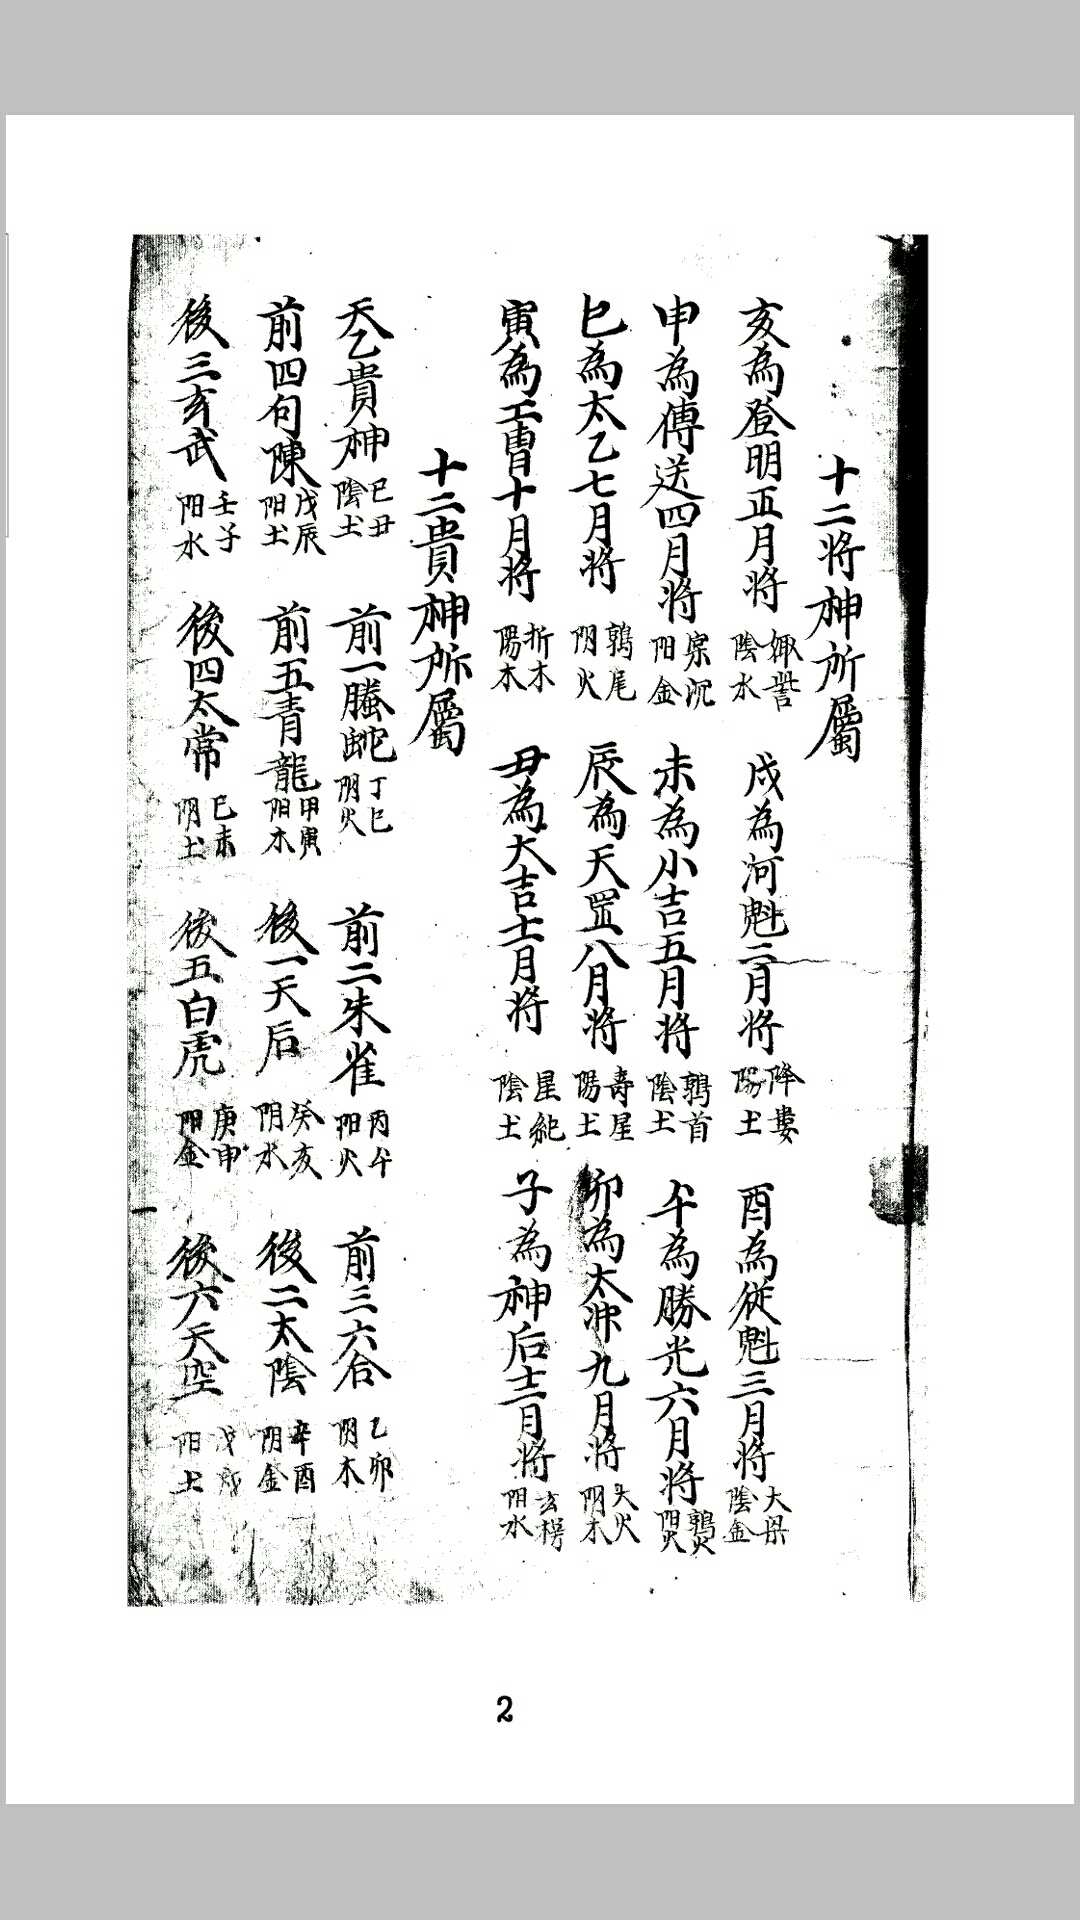 十二将神所屬
亥為登明正月将 娵訾 陰水 戌為河魁二月将 降婁 陽土 酉為從魁三月将 大梁 陰金
申為傳送四月将 实沉 阳金 未為小吉五月将 鶉首 陰土 午為勝光六月将 鶉火 阳火
巳為太乙七月将 鶉尾 阴火 辰為天罡八月将 壽星 陽土 卯為太冲九月将 大火 阴木
寅為工曹十月将 析木 陽木 丑為大吉十一月将 星紀 陰土 子為神后十二月将 玄枵 阳水
十二貴神所屬
天乙貴神 己丑 陰土 前一螣蛇 丁巳 阴火 前二朱雀 丙午 阳火 前三六合 乙卯 阴木
前四句陳 戊辰 阳土 前五青龍 甲寅 阳木 後一天后 癸亥 阴水 後二太陰 辛酉 阴金
後三玄武 壬子 阳水 後四太常 己未 阴土 後五白虎 庚申 阳金 後六天空 戊戌 阳土
2